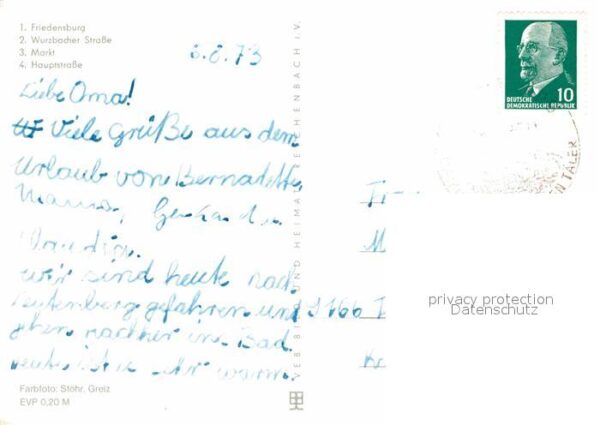 1. Friedensburg
2. Wurzbacher Straße
3. Markt
4. Hauptstraße
6.8.73
Liebe Oma!
Viele Grüße aus dem
Urlaub von Bernadette,
Mama, Gerhard
Claudia.
wir sind heute nach
Leutenberg gefahren und
gehen nachher ins Bad.
heute ist sehr warm.
Farbfoto: Stöhr, Greiz
EVP 0,20 M
VEB BILD UND HEIMAT REICHENBACH i. V.
10
DEUTSCHE
DEMOKRATISCHE REPUBLIK
TÄLER
privacy protection
Datenschutz